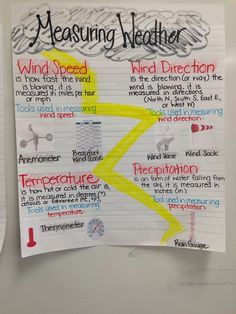 Measuring Weather
Wind Speed
is how fast the wind
is blowing, it is
measured in miles per hour
or mph
Tools used in measuring
wind speed:
Anemometer
Beaufort
Wind Scale
Wind Direction
is the direction (or way) the
wind is blowing, it is
measured in directions
(North N, South S, East E,
or West W)
Tools used in measuring
wind direction:
Wind Vane
Wind Sock
Temperature
is how hot or cold the air is,
it is measured in degrees (°)
celsius or fahrenheit (°C, °F)
Tools used in measuring
temperature:
Thermometer
Precipitation
is an form of water falling from
the sky, it is measured in
inches (in.)
Tools used in measuring
precipitation:
Rain Gauge